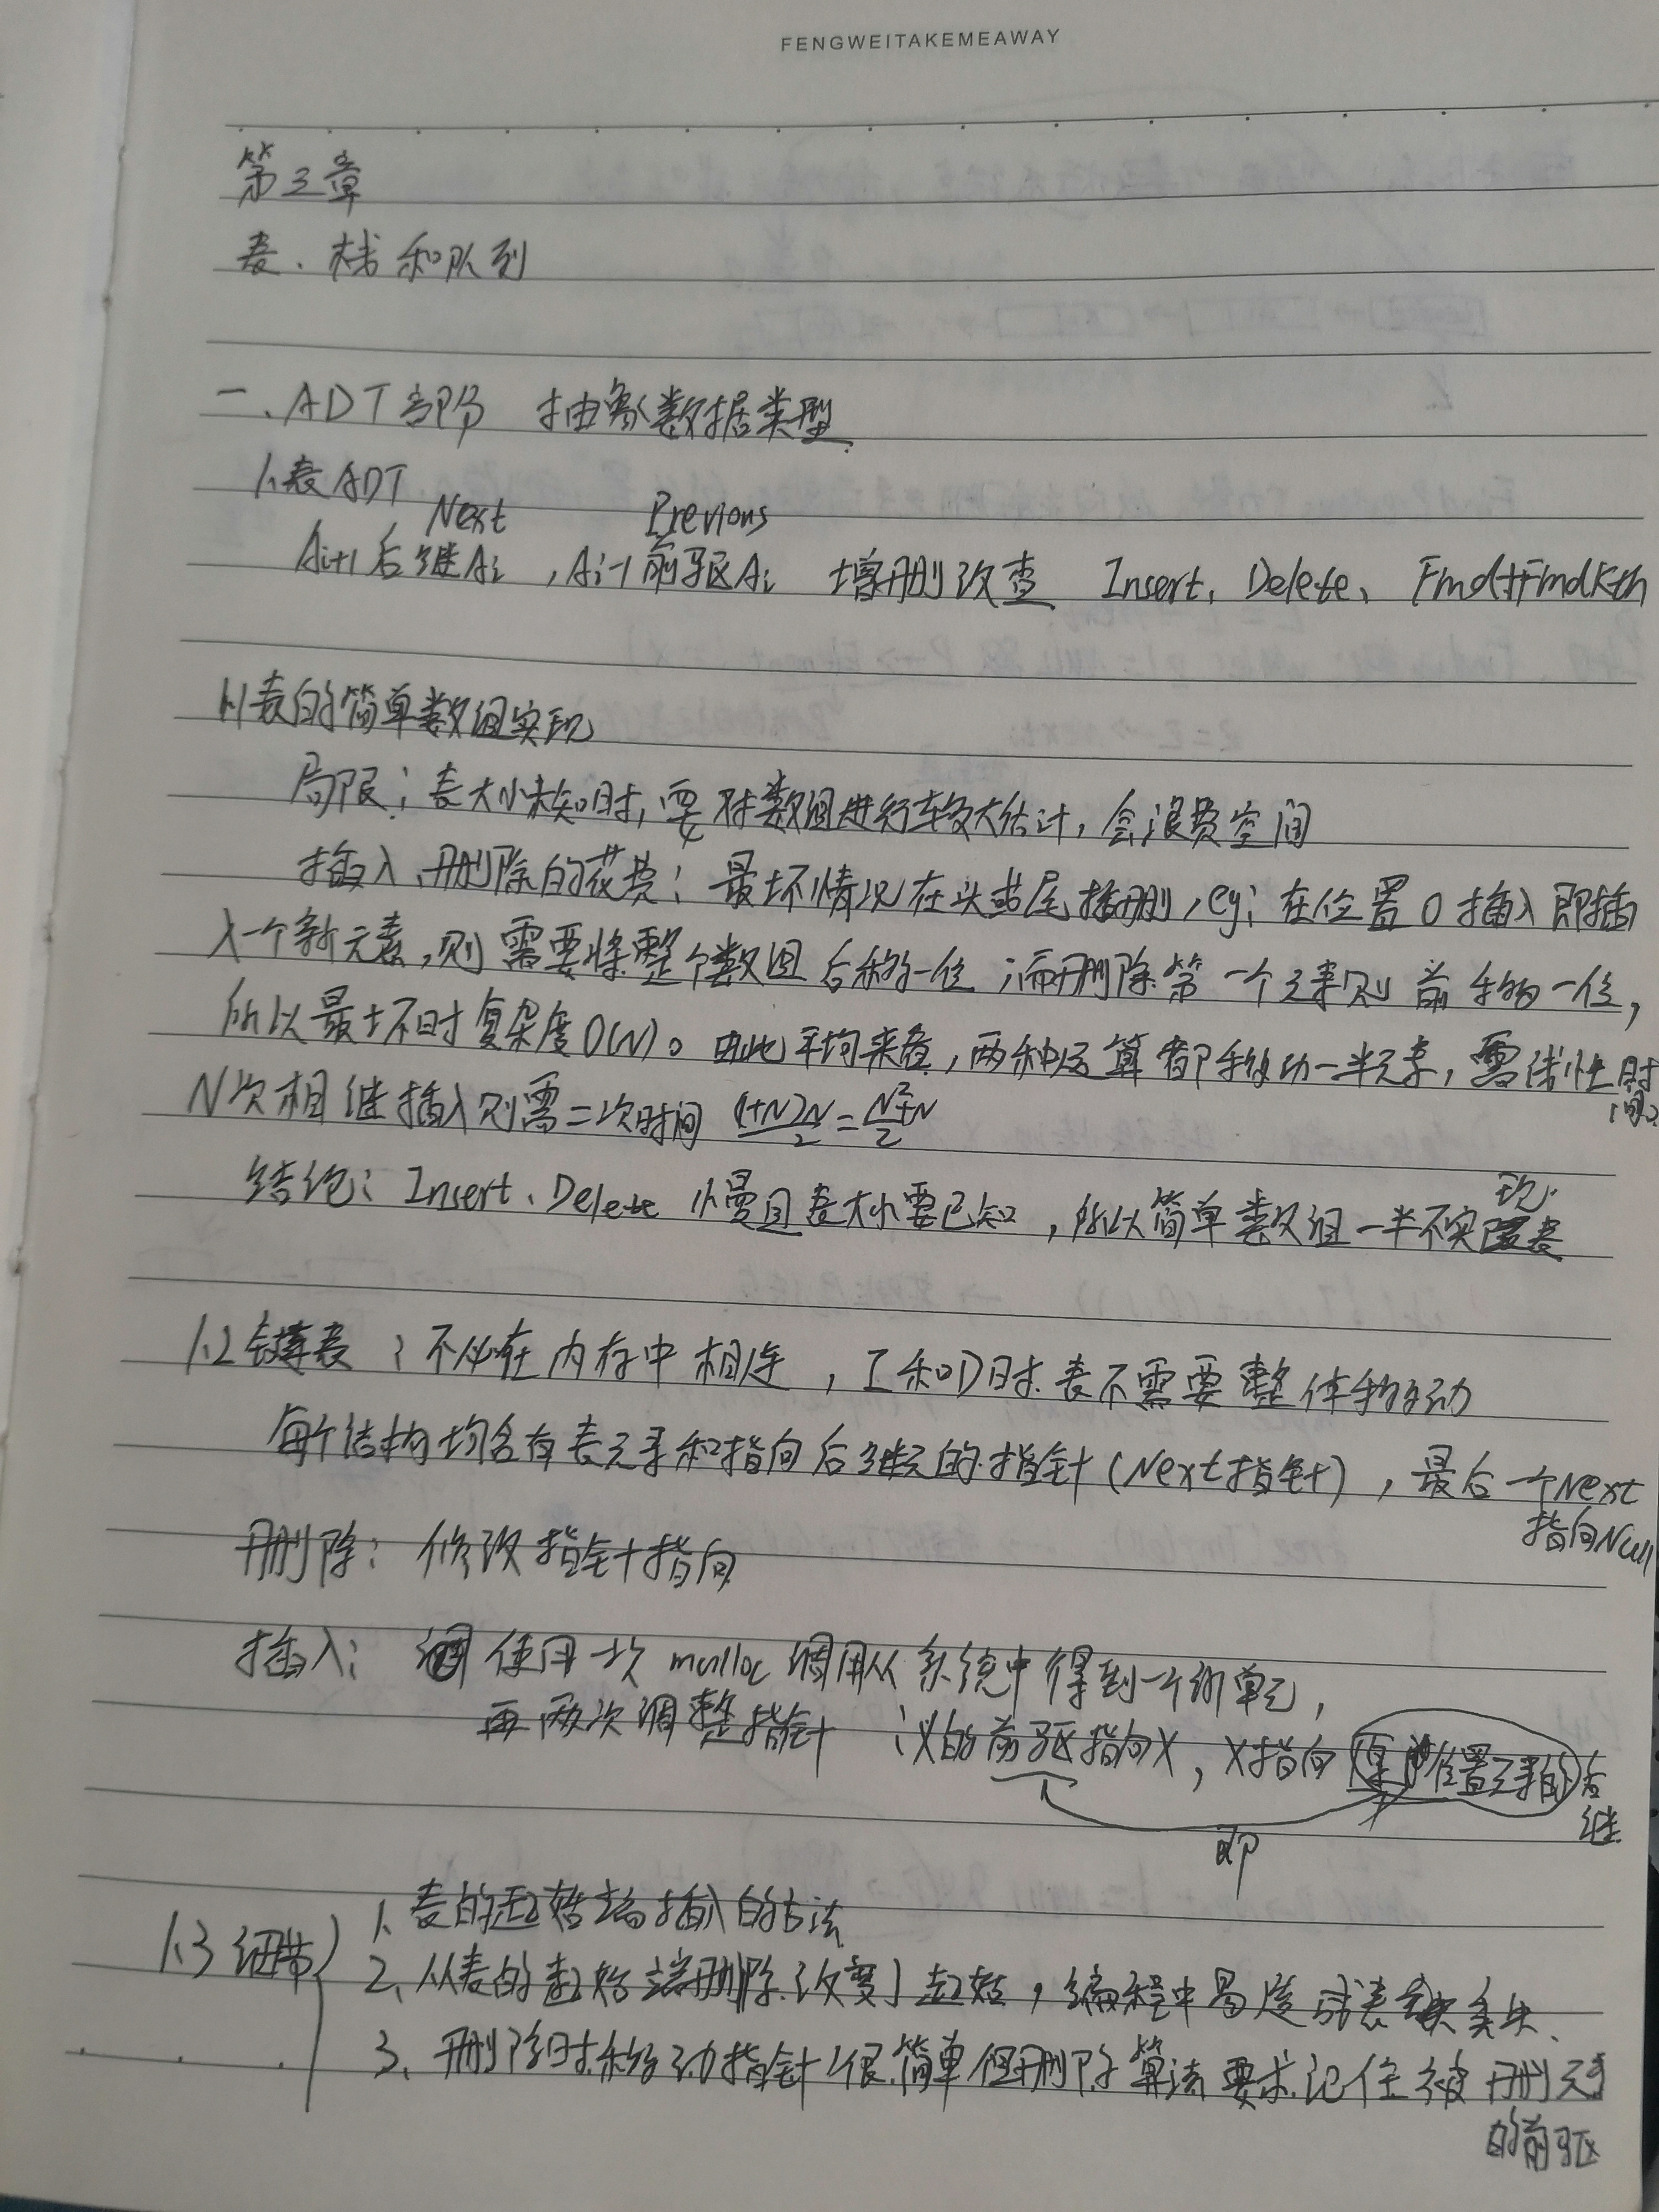 FENGWEITAKEMEAWAY
第三章
表、栈和队列
一、ADT部分 抽象数据类型
1.表ADT
Next Previous
Ai+1后继Ai,Ai-1前驱Ai 增删改查 Insert、Delete、Find+FindKth
1.1表的简单数组实现
局限:表大小未知时,要对数组进行较大估计,会浪费空间
插入、删除的花费:最坏情况在头或尾插删,eg:在位置0插入即插
入一个新元素,则需要将整个数组后移一位;而删除第一个元素则前移一位,
所以最坏时复杂度O(N)。由此平均来看,两种运算都移动一半元素,需线性时间。
N次相继插入则需二次时间 (1+N)N/2=N²+N/2
结论:Insert、Delete 慢且表大小要已知,所以简单数组一半不实现表
1.2链表:不必在内存中相连,I和D时表不需要整体移动
每个结构均含有表元素和指向后继元的指针(Next指针),最后一个Next
指向Null
删除:修改指针指向
插入:使用一次malloc调用从系统中得到一个新单元,
再两次调整指针 X的前驱指向X,X指向原位置元素的后继
即
1.3 细节
1、表的起始端插入的方法
2、从表的起始端删除改变了起始,编程中易造成表丢失、
3、删除时移动指针很简单但删除算法要求记住被删元素
的前驱